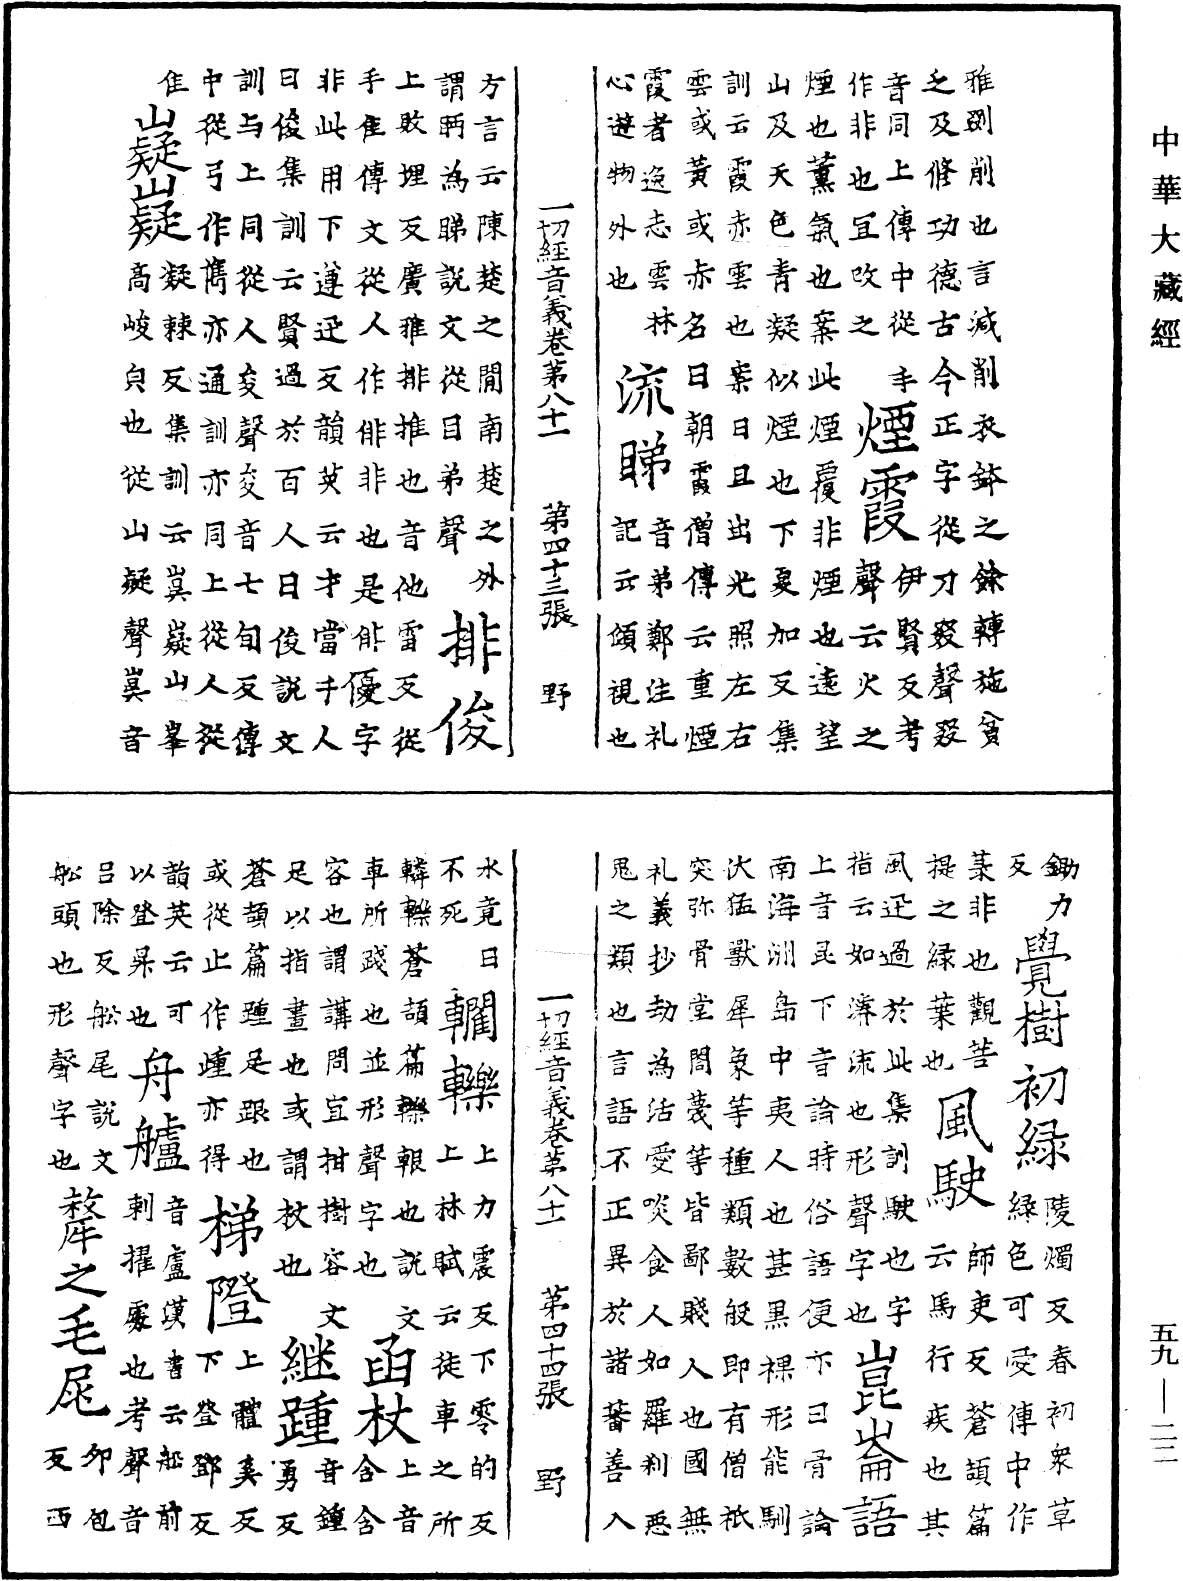 中華大藏經
雅剟削也言減削衣鉢之餘轉施貧
之及修功德古今正字從刀叕聲叕
音同上傳中從手
作非也宜改之
煙霞
伊賢反考
聲云火之
煙也薰氣也案此煙霞非煙也遠望
山及天色青凝似煙也下夏加反集
訓云霞赤雲也案日且出光照左右
雲或黃或赤名曰朝霞僧傳云重煙
霞者逸志雲林
心遊物外也
流睇
音弟鄭注礼
記云頌視也
一切經音義卷第八十一 第四十三張 野
方言云陳楚之閒南楚之外
謂眄為睇說文從目弟聲
排俊
上敗埋反廣雅排推也音他雷反從
手隹傳文從人作俳非也是俳優字
非此用下遵迅反韻英云才當千人
曰俊集訓云賢過於百人曰俊說文
訓与上同從人夋聲夋音七旬反傳
中從弓作儁亦通訓亦同上從人從
隹
嶷嶷
凝棘反集訓云崱嶷山峯
高峻皃也從山疑聲崱音
鋤力
反
覺樹初緑
陵燭反春初衆草
緑色可愛傳中作
菉非也觀菩
提之緑葉也
風駛
師吏反蒼頡篇
云馬行疾也其
風迅過於此集訓駛也字
指云如濤流也形聲字也
崑崙語
上音昆下音論時俗語便亦曰骨論
南海洲島中夷人也甚黑裸形能馴
伏猛獸犀象等種類數般即有僧祇
突弥骨堂閤蔑等皆鄙賤人也國無
礼義抄劫為活愛啖食人如羅刹惡
鬼之類也言語不正異於諸蕃善入
一切經音義卷第八十一 第四十四張 野
水竟日
不死
轥轢
上力震反下零的反
上林賦云徒車之所
轔轢蒼頡篇轢報也說文
車所踐也並形聲字也
函杖
上音
含含
容也謂講問宜拑樹容文
足以指畫也或謂杖也
継踵
音鍾
勇反
蒼頡篇踵足跟也上體奚反
或從止作歱亦得
梯隥
下登鄧反
韻英云可
以登昇也
舟艫
音盧漢書云舩前
刺擢處也考聲音
呂除反舩尾說文
舩頭也形聲字也
犛之毛尾
卯包
反西
五九—二一二